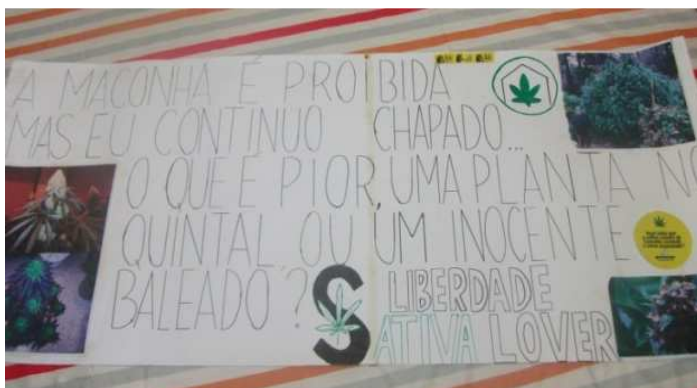 A MACONHA É PROIBIDA
MAS EU CONTINUO CHAPADO...
O QUE É PIOR, UMA PLANTA NO
QUINTAL OU UM INOCENTE
BALEADO?
LIBERDADE
SATIVA LOVER